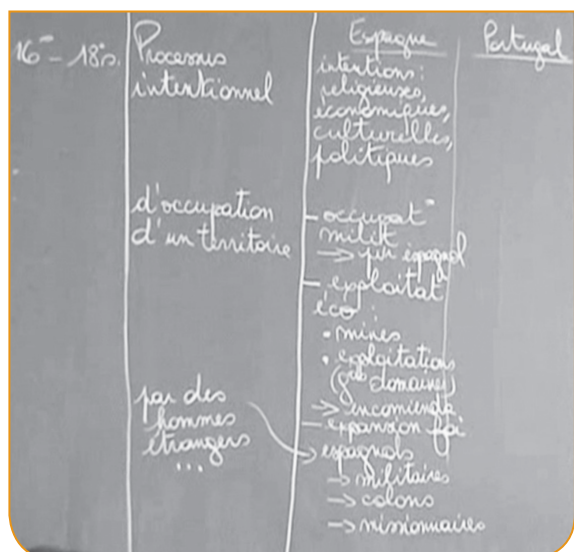 16e - 18e s.
Processus
intentionnel
d'occupation
d'un territoire
par des
hommes
étrangers
...
Espagne
intentions :
religieuses,
économiques,
culturelles,
politiques
- occupat°
milit
→ espagnol
- exploitat
éco :
• mines
• exploitations
(gds domaines)
→ encomienda
- expansion foi
espagnols
→ militaires
→ colons
→ missionnaires
Portugal